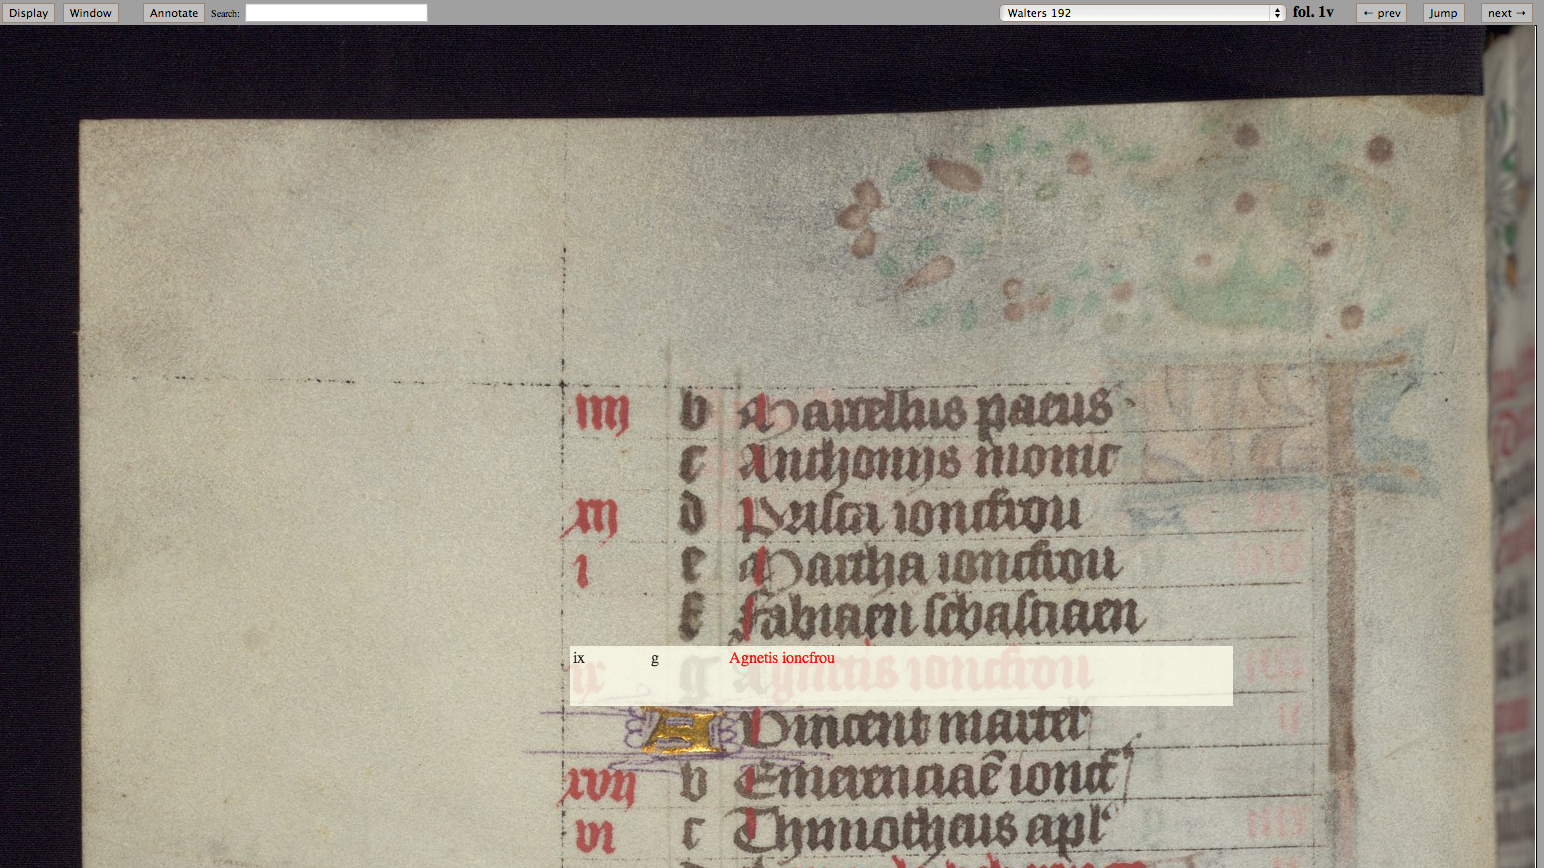 Display Window Annotate Search: Walters 192 fol. 1v ← prev Jump next →
iiij b Marcellus pacus
c Anthonijs monic
xij d Prisca ioncfrou
i e Martha ioncfrou
f fabiaen sebastiaen
ix g Agnetis ioncfrou
A Vincent martel
xvij b Emerenciaē ioncf
vi c Thimotheus apl